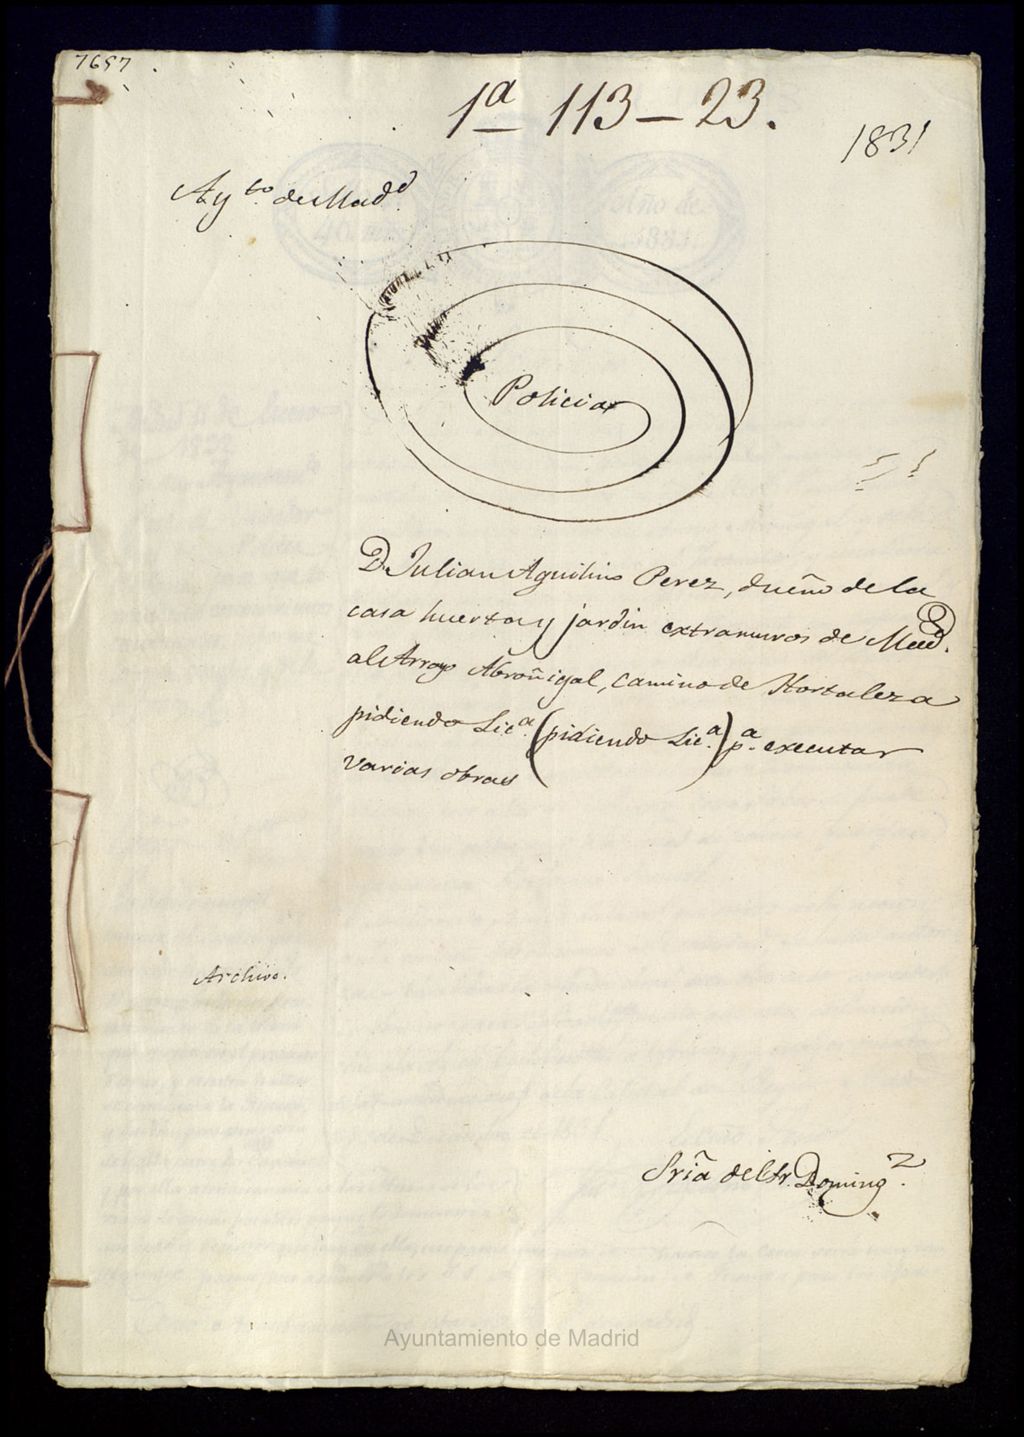 7657
1ª 113-23.
1831
Ayto. de Madd.
Policia
D. Julian Aquilino Perez, dueño de la
casa huerta y jardin extramuros de Mad.
al Arroyo Abroñigal, camino de Hortaleza
pidiendo Lica. (pidiendo Lica.) pa. executar
varias obras
Archivo.
Sria del Sr. Domingz.
Ayuntamiento de Madrid